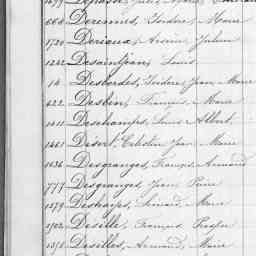 666 Derennes, Isidore, Marie
1720 Derieux, Arsène Julien
1242 Desaintjean, Louis
14 Desbordes, Isidore Jean Marie
622 Desblin, François, Marie
1411 Deschamps, Louis Albert
1461 Désert, Célestin Jean Marie
1636 Desgranges, François, Armand
1777 Desgranges, Jean Pierre
1579 Deshayes, Armand, Marie
1702 Desille, François Prosper
1371 Desilles, Armand, Marie